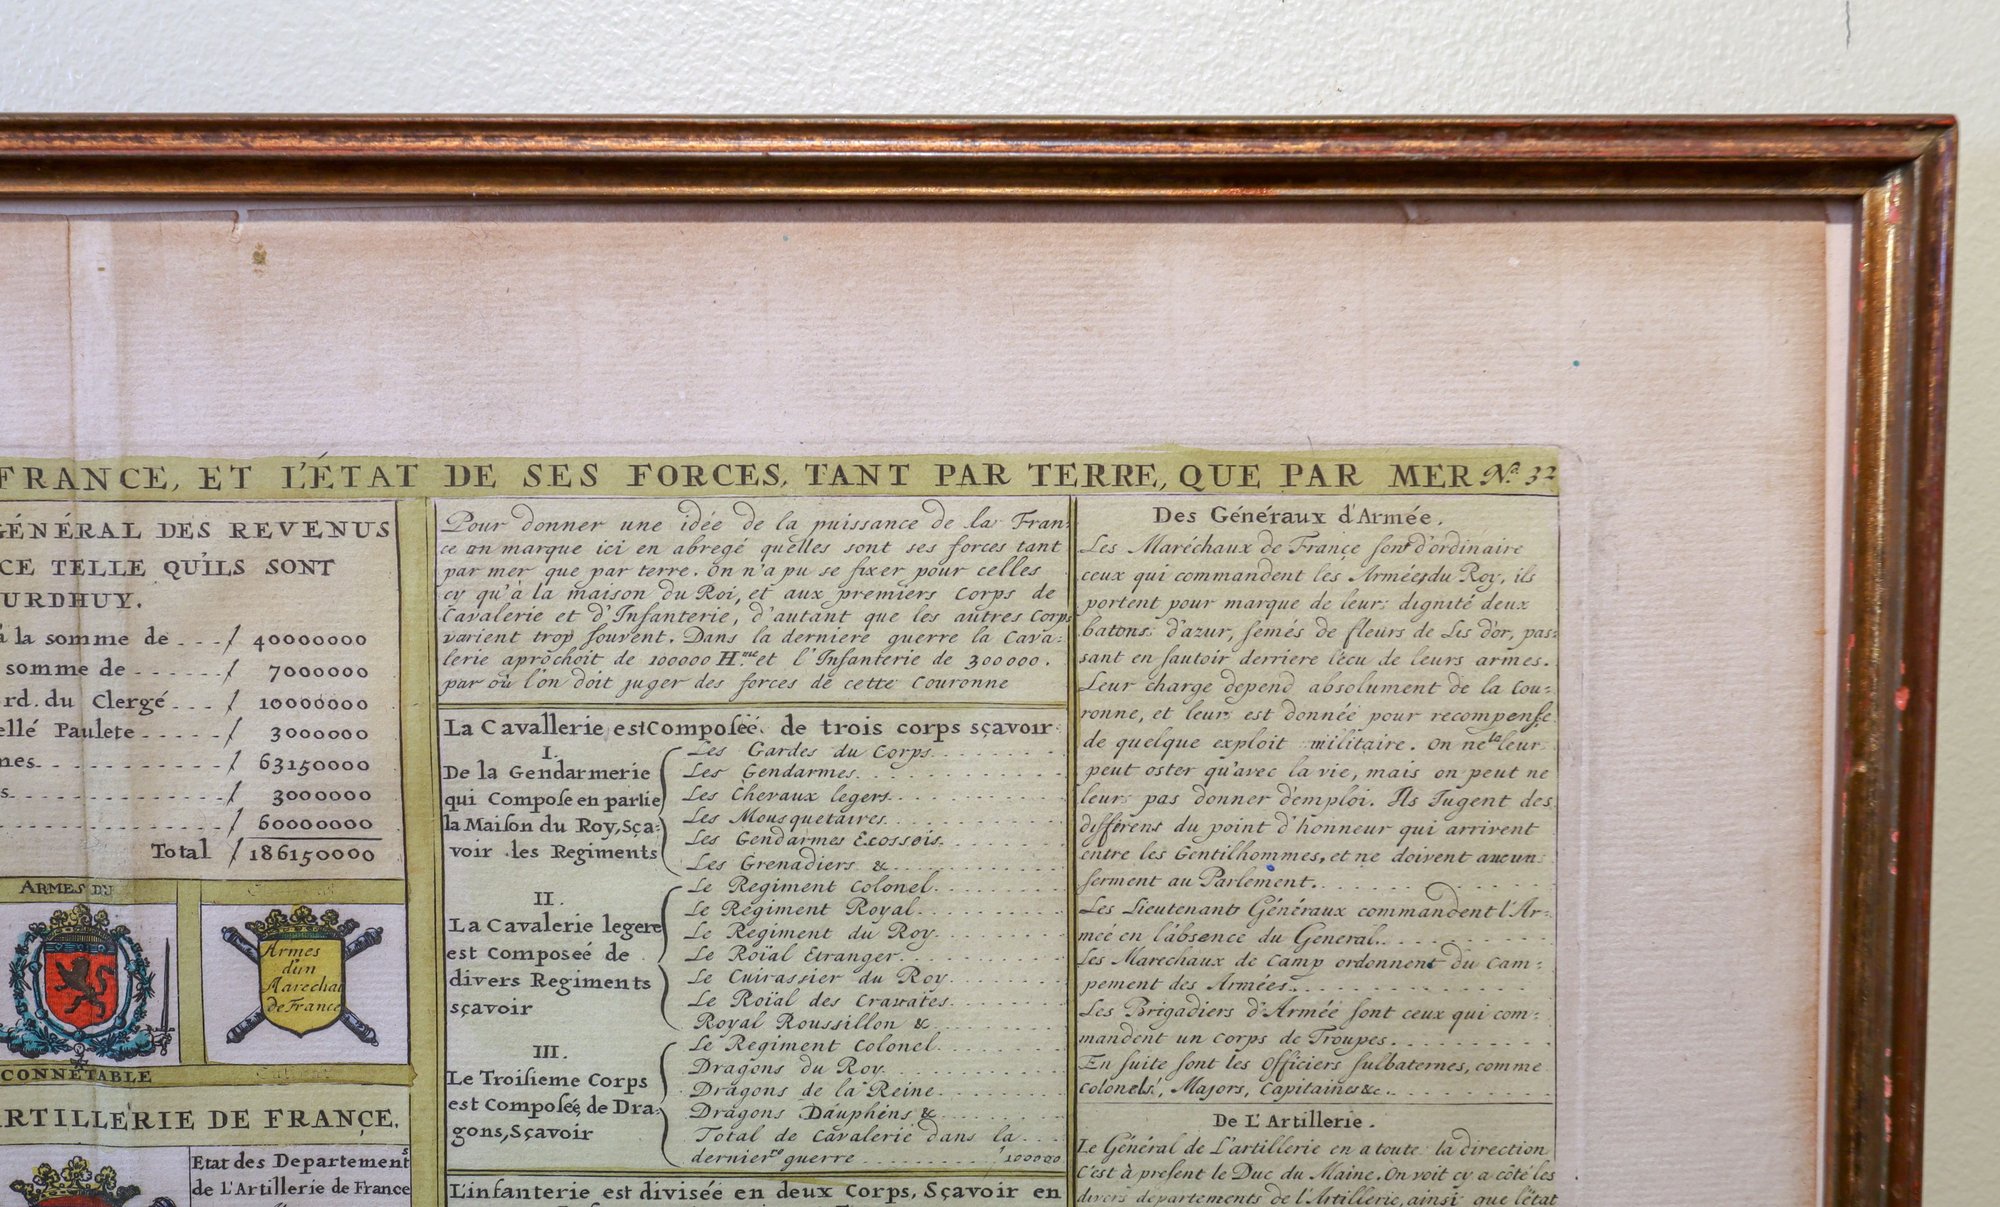 FRANCE, ET L'ÉTAT DE SES FORCES, TANT PAR TERRE, QUE PAR MER Nº. 32
GÉNÉRAL DES REVENUS
CE TELLE QU'ILS SONT
URDHUY.
à la somme de ... / 40000000
somme de ...... / 7000000
rd. du Clergé ... / 10000000
ellé Paulete ..... / 3000000
mes ........... / 63150000
s ............. / 3000000
............. / 60000000
Total / 186150000
ARMES DU
CONNÉTABLE
Armes
d'un
Marechal
de France
ARTILLERIE DE FRANCE.
Etat des Departements
de L'Artillerie de France
Pour donner une idée de la puissance de la Fran-
ce on marque ici en abregé quelles sont ses forces tant
par mer que par terre. On n'a pu se fixer pour celles
cy qu'à la maison du Roi, et aux premiers Corps de
Cavalerie et d'Infanterie, d'autant que les autres Corps
varient trop souvent. Dans la derniere guerre la Cava-
lerie aprochoit de 100000 H.mes et l'Infanterie de 300000.
par où l'on doit juger des forces de cette Couronne
La Cavallerie est Composéé. de trois corps sçavoir
I.
De la Gendarmerie
qui Compose en partie
la Maison du Roy, Sça-
voir les Regiments
Les Gardes du Corps.........
Les Gendarmes............
Les Chevaux legers..........
Les Mousquetaires..........
Les Gendarmes Ecossois.......
Les Grenadiers &..........
II.
La Cavalerie legere
est Composeé de
divers Regiments
sçavoir
Le Regiment Colonel.........
Le Regiment Royal.........
Le Regiment du Roy.........
Le Roïal Etranger..........
Le Cuirassier du Roy........
Le Roïal des Cravates........
Royal Roussillon &.........
III.
Le Troisieme Corps
est Composée, de Dra-
gons, Sçavoir
Le Regiment Colonel.........
Dragons du Roy...........
Dragons de la Reine.........
Dragons Dauphéns &........
Total de Cavalerie dans la ...
derniere guerre ............ 100000
L'infanterie est divisée en deux Corps, Sçavoir en
Des Généraux d'Armée.
Les Maréchaux de France sont d'ordinaire
ceux qui commandent les Armées du Roy, ils
portent pour marque de leur dignité deux
batons d'azur, semés de fleurs de Lis d'or, pas-
sant en sautoir derriere l'écu de leurs armes.
Leur charge depend absolument de la Cou-
ronne, et leur est donnée pour recompense
de quelque exploit militaire. On ne la leur
peut oster qu'avec la vie, mais on peut ne
leur pas donner d'emploi. Ils Jugent des
différens du point d'honneur qui arrivent
entre les Gentilhommes, et ne doivent aucun
serment au Parlement...........
Les Lieutenants Généraux commandent l'Ar-
meé en l'absence du General..........
Les Marechaux de Camp ordonnent du Cam-
pement des Armées..............
Les Brigadiers d'Armée sont ceux qui com-
mandent un Corps de Troupes.........
En suite sont les Officiers sulbaternes, comme
Colonels, Majors, Capitaines &c..........
De L'Artillerie.
Le Général de L'artillerie en a toute la direction
C'est à présent le Duc du Maine. On voit cy a côté les
divers départements de l'Artillerie, ainsi que l'état